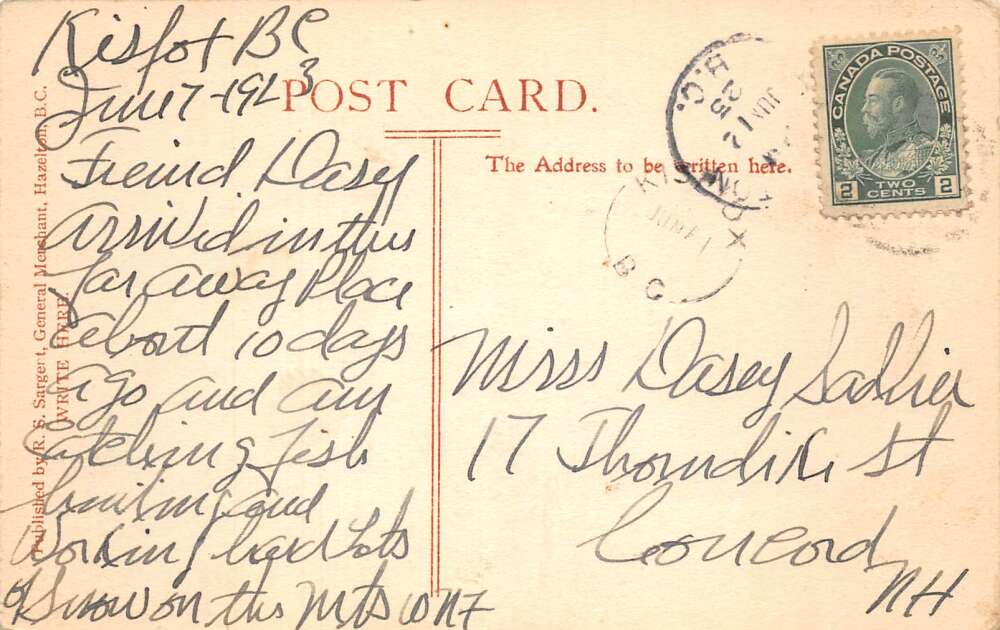 Kisfox BC
June 7-1923
Freind Dasey
arrived in this
far away Place
about 10 days
ago and am
catching Fish
hunting and
working hard Lots
of Snow on the Mts
POST CARD.
The Address to be written here.
Published by R. S. Sargent, General Merchant, Hazelton, B.C.
(WRITE HERE)
CANADA POSTAGE
2 TWO CENTS 2
B.C.
JUN 12
23
KISPIOX
JUN
B C
Miss Dasey Sadlier
17 Thorndike St
Concord
NH